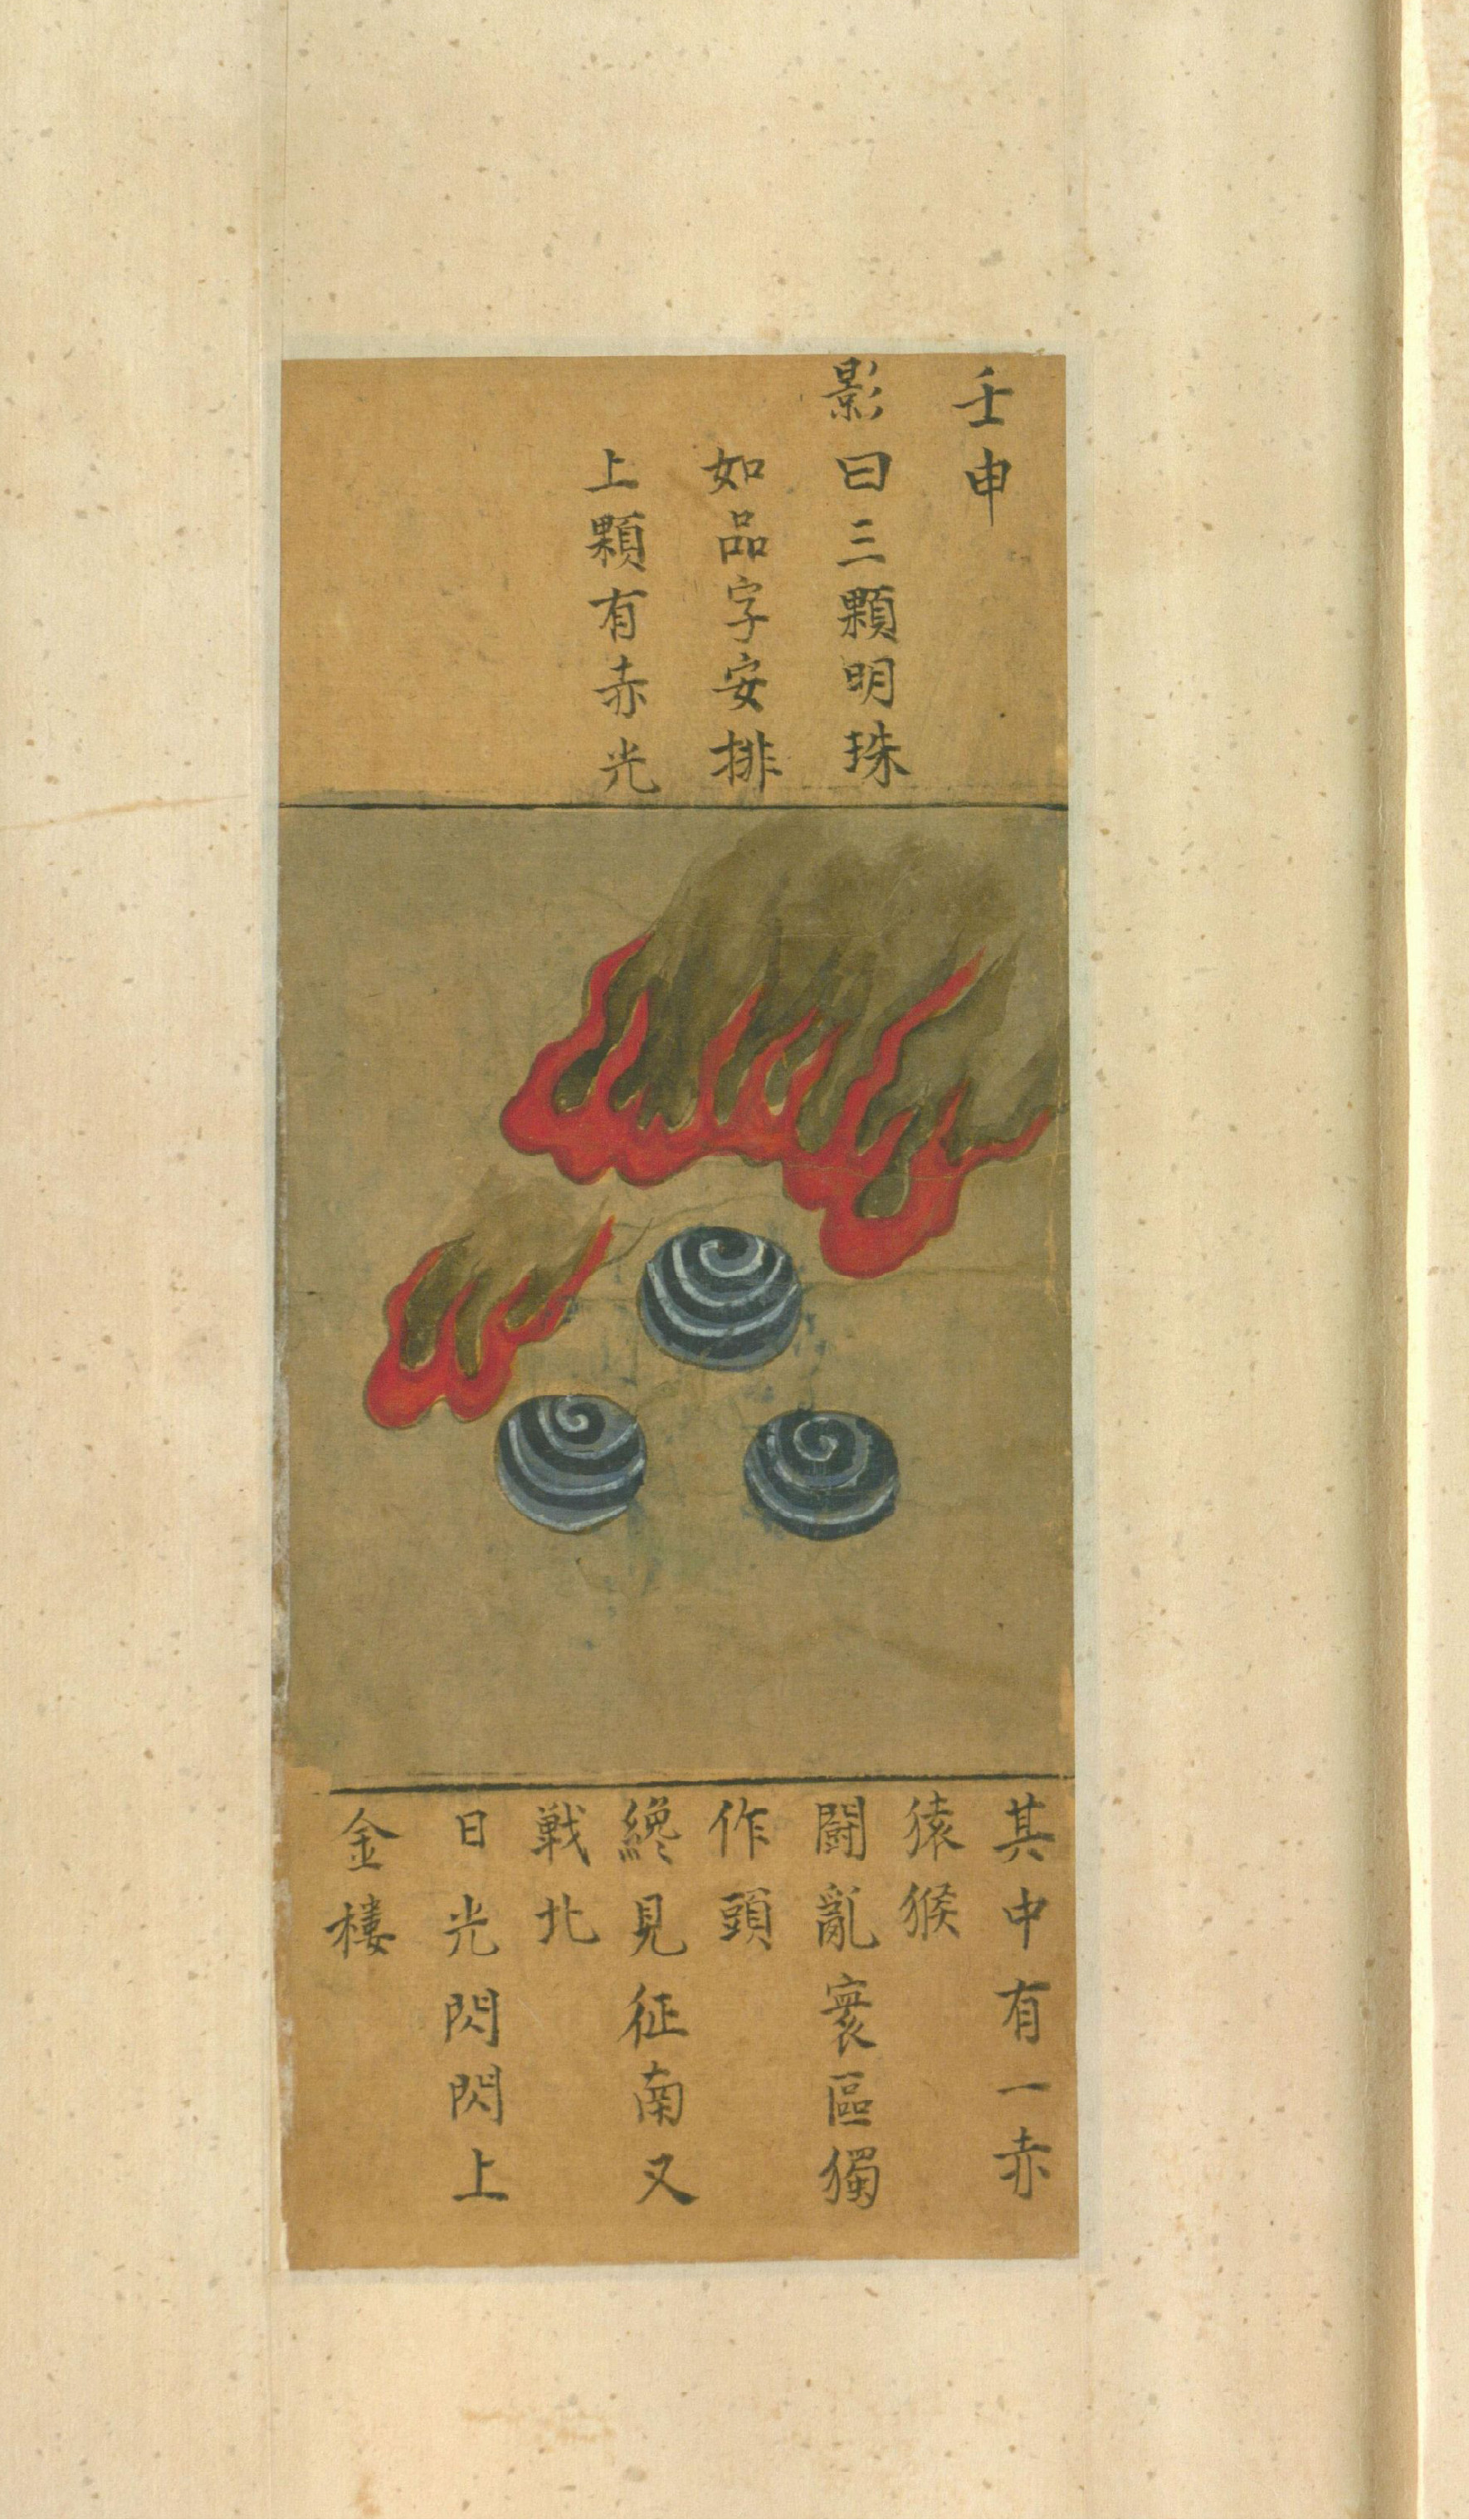 壬申
影曰三顆明珠
如品字安排
上顆有赤光
其中有一赤
猿猴
鬭亂寰區獨
作頭
纔見征南又
戦北
日光閃閃上
金樓